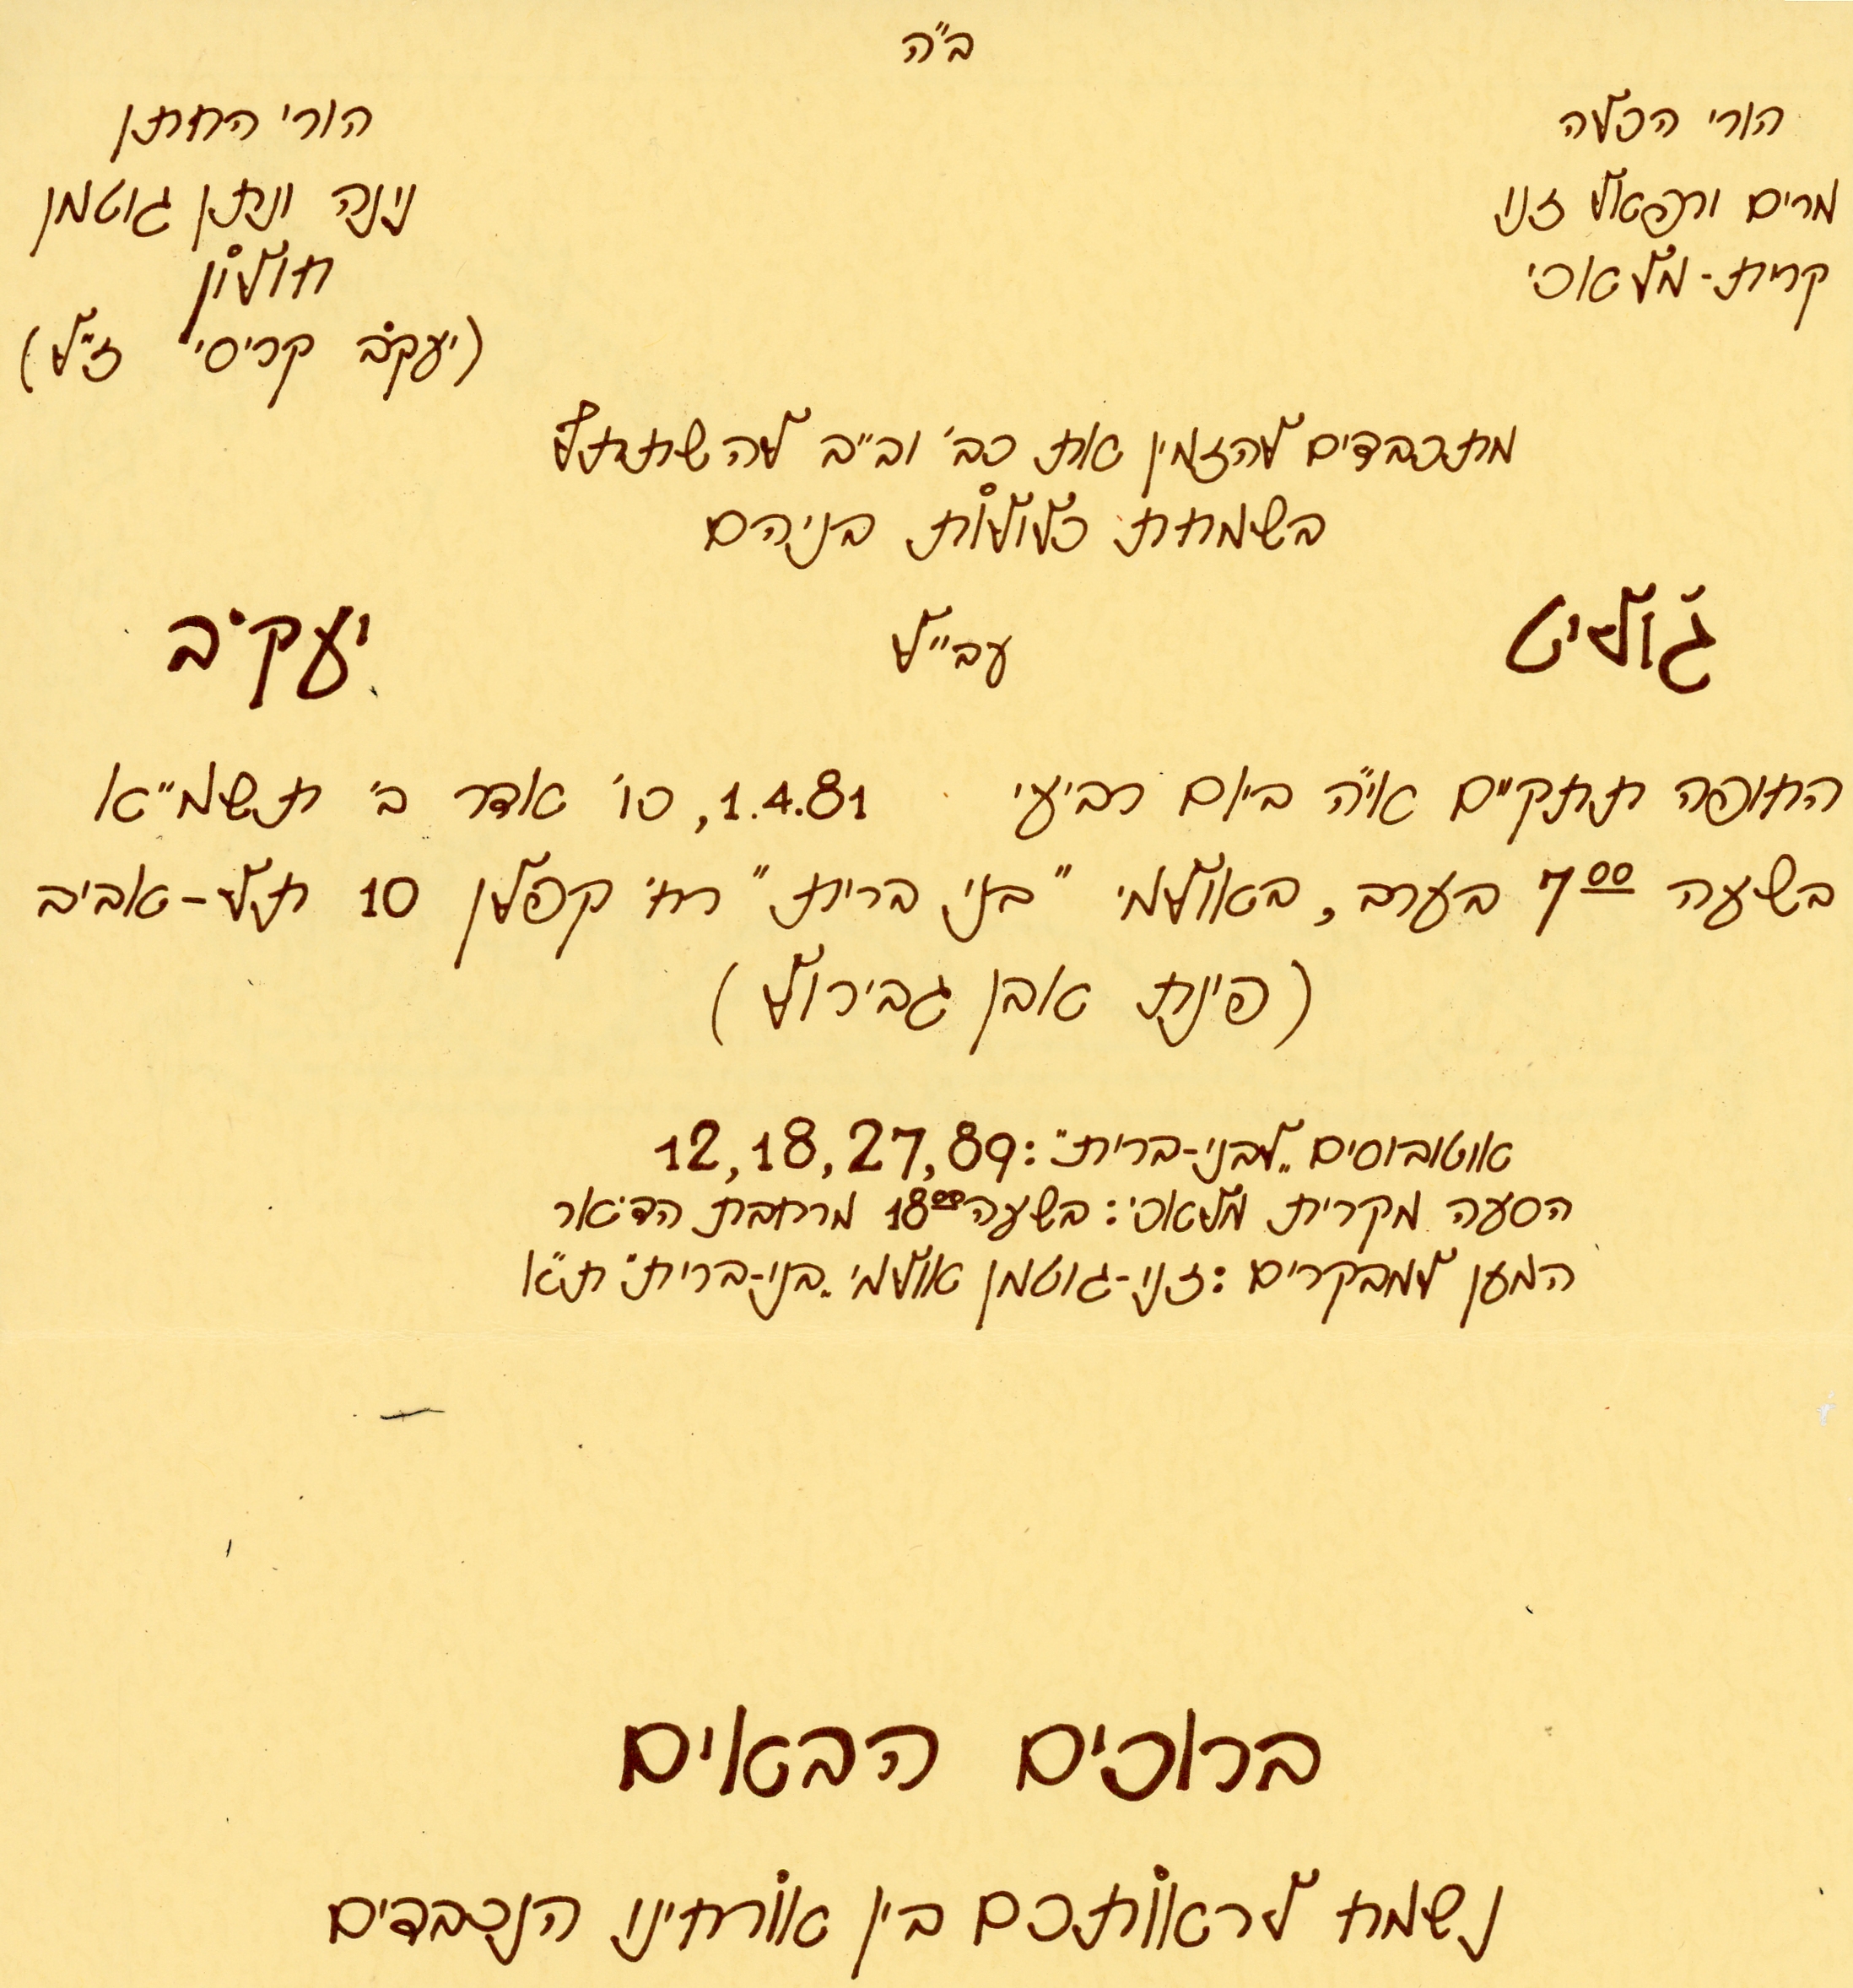 ב"ה
הורי הכלה
מרים ורפאל זנו
קרית-מלאכי
הורי החתן
נינה ונתן גוטמן
חולון
(יעקב קריסי ז"ל)
מתכבדים להזמין את כב' וב"ב להשתתף
בשמחת כלולות בניהם
ג'וליט עב"ל יעקב
החופה תתקיים אי"ה ביום רביעי 1.4.81, כו' אדר ב' תשמ"א
בשעה 7⁰⁰ בערב, באולמי "בני ברית" רח' קפלן 10 תל-אביב
(פינת אבן גבירול)
אוטובוסים "לבני-ברית": 12,18,27,89
הסעה מקרית מלאכי: בשעה 18⁰⁰ מרחבת הדואר
המען למבקרים: זני-גוטמן אולמי "בני-ברית" ת"א
ברוכים הבאים
נשמח לראותכם בין אורחינו הנכבדים